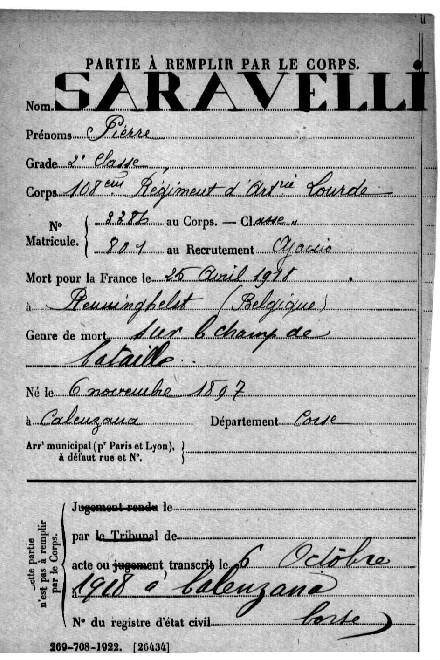 PARTIE À REMPLIR PAR LE CORPS.
Nom. SARAVELLI
Prénoms Pierre
Grade 2e classe
Corps 108eme Régiment d'Artrie Lourde
No Matricule. 3286 au Corps. — Classe "
801 au Recrutement Ajaccio
Mort pour la France le 25 Avril 1918
à Reninghelst (Belgique)
Genre de mort sur le champ de
bataille
Né le 6 novembre 1897
à Calenzana Département Corse
Arrt municipal (pr Paris et Lyon),
à défaut rue et No.
Jugement rendu le
par le Tribunal de
acte ou jugement transcrit le 6 Octobre
1918 à Calenzana
No du registre d'état civil Corse
Cette partie
n'est pas à remplir
par le Corps.
269-708-1922. [26434]